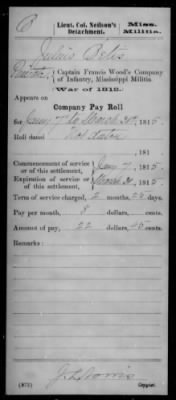 Lieut. Col. Neilson's Detachment. Miss. Militia.
Julius
Private, Captain Francis Wood's Company of Infantry, Mississippi Militia
(War of 1812.)
Appears on
Company Pay Roll
for Jany 7 to March 30, 1815.
Roll dated
No date
, 181
Commencement of service or of this settlement, Jany 7, 1815.
Expiration of service or of this settlement, March 30, 1815.
Term of service charged, 2 months, 24 days.
Pay per month, 8 dollars, cents.
Amount of pay, 22 dollars, 45 cents.
Remarks:
(572) Copyist.